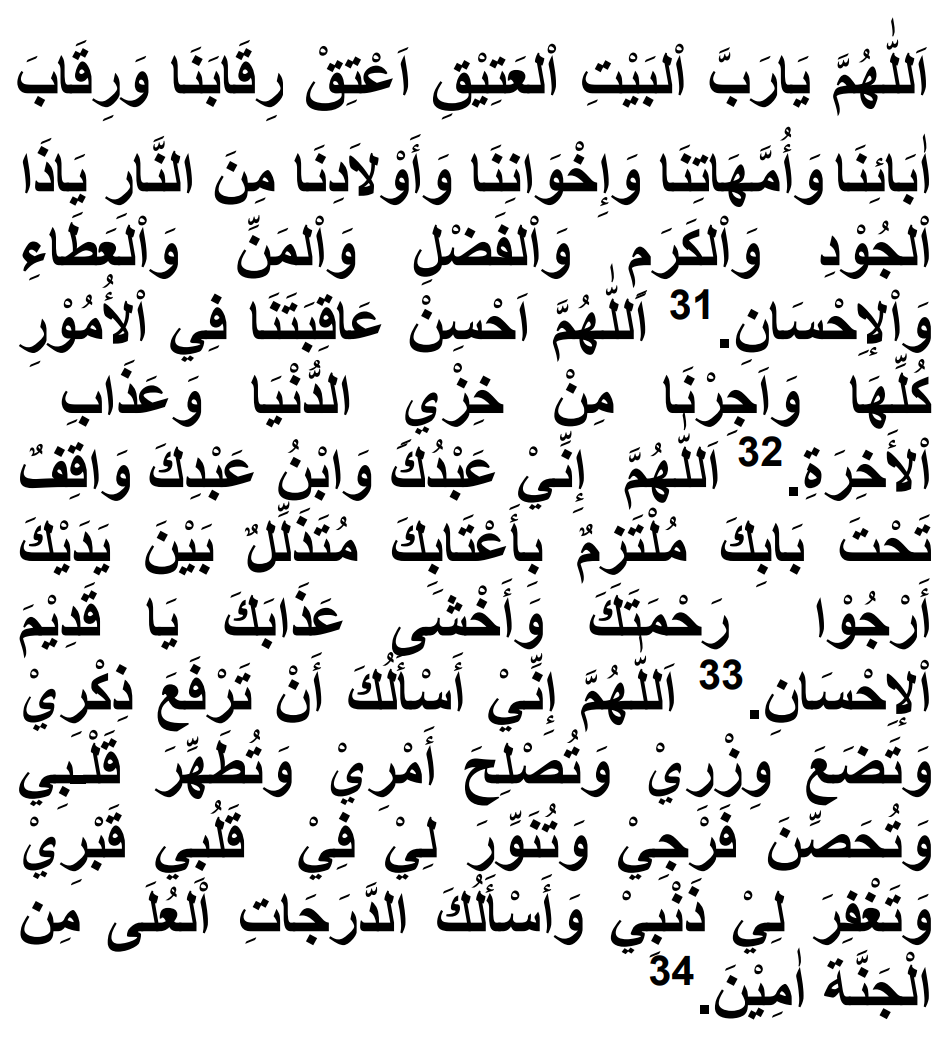 اَللّٰهُمَّ يَارَبَّ اْلبَيْتِ اْلعَتِيْقِ اَعْتِقْ رِقَابَنَا وَرِقَابَ
اٰبَائِنَا وَأُمَّهَاتِنَا وَإِخْوَانِنَا وَأَوْلاَدِنَا مِنَ النَّارِ يَاذَا
اْلجُوْدِ وَاْلكَرَمِ وَاْلفَضْلِ وَاْلمَنِّ وَاْلعَطَاءِ
وَاْلإِحْسَانِ.31 اَللّٰهُمَّ اَحْسِنْ عَاقِبَتَنَا فِي اْلأُمُوْرِ
كُلِّهَا وَاَجِرْنَا مِنْ خِزْيِ الدُّنْيَا وَعَذَابِ
اْلأَخِرَةِ.32 اَللّٰهُمَّ إِنِّيْ عَبْدُكَ وَابْنُ عَبْدِكَ وَاقِفٌ
تَحْتَ بَابِكَ مُلْتَزِمٌ بِأَعْتَابِكَ مُتَذَلِّلٌ بَيْنَ يَدَيْكَ
أَرْجُوْا رَحْمَتَكَ وَأَخْشَى عَذَابَكَ يَا قَدِيْمَ
اْلإِحْسَانِ.33 اَللّٰهُمَّ إِنِّيْ أَسْأَلُكَ أَنْ تَرْفَعَ ذِكْرِيْ
وَتَضَعَ وِزْرِيْ وَتُصْلِحَ أَمْرِيْ وَتُطَهِّرَ قَلْبِي
وَتُحَصِّنَ فَرْجِيْ وَتُنَوِّرَ لِيْ فِيْ قَلْبي قَبْرِيْ
وَتَغْفِرَ لِيْ ذَنْبِيْ وَأَسْأَلُكَ الدَّرَجَاتِ اْلعُلَى مِن
الْجَنَّة اٰمِيْنَ.34